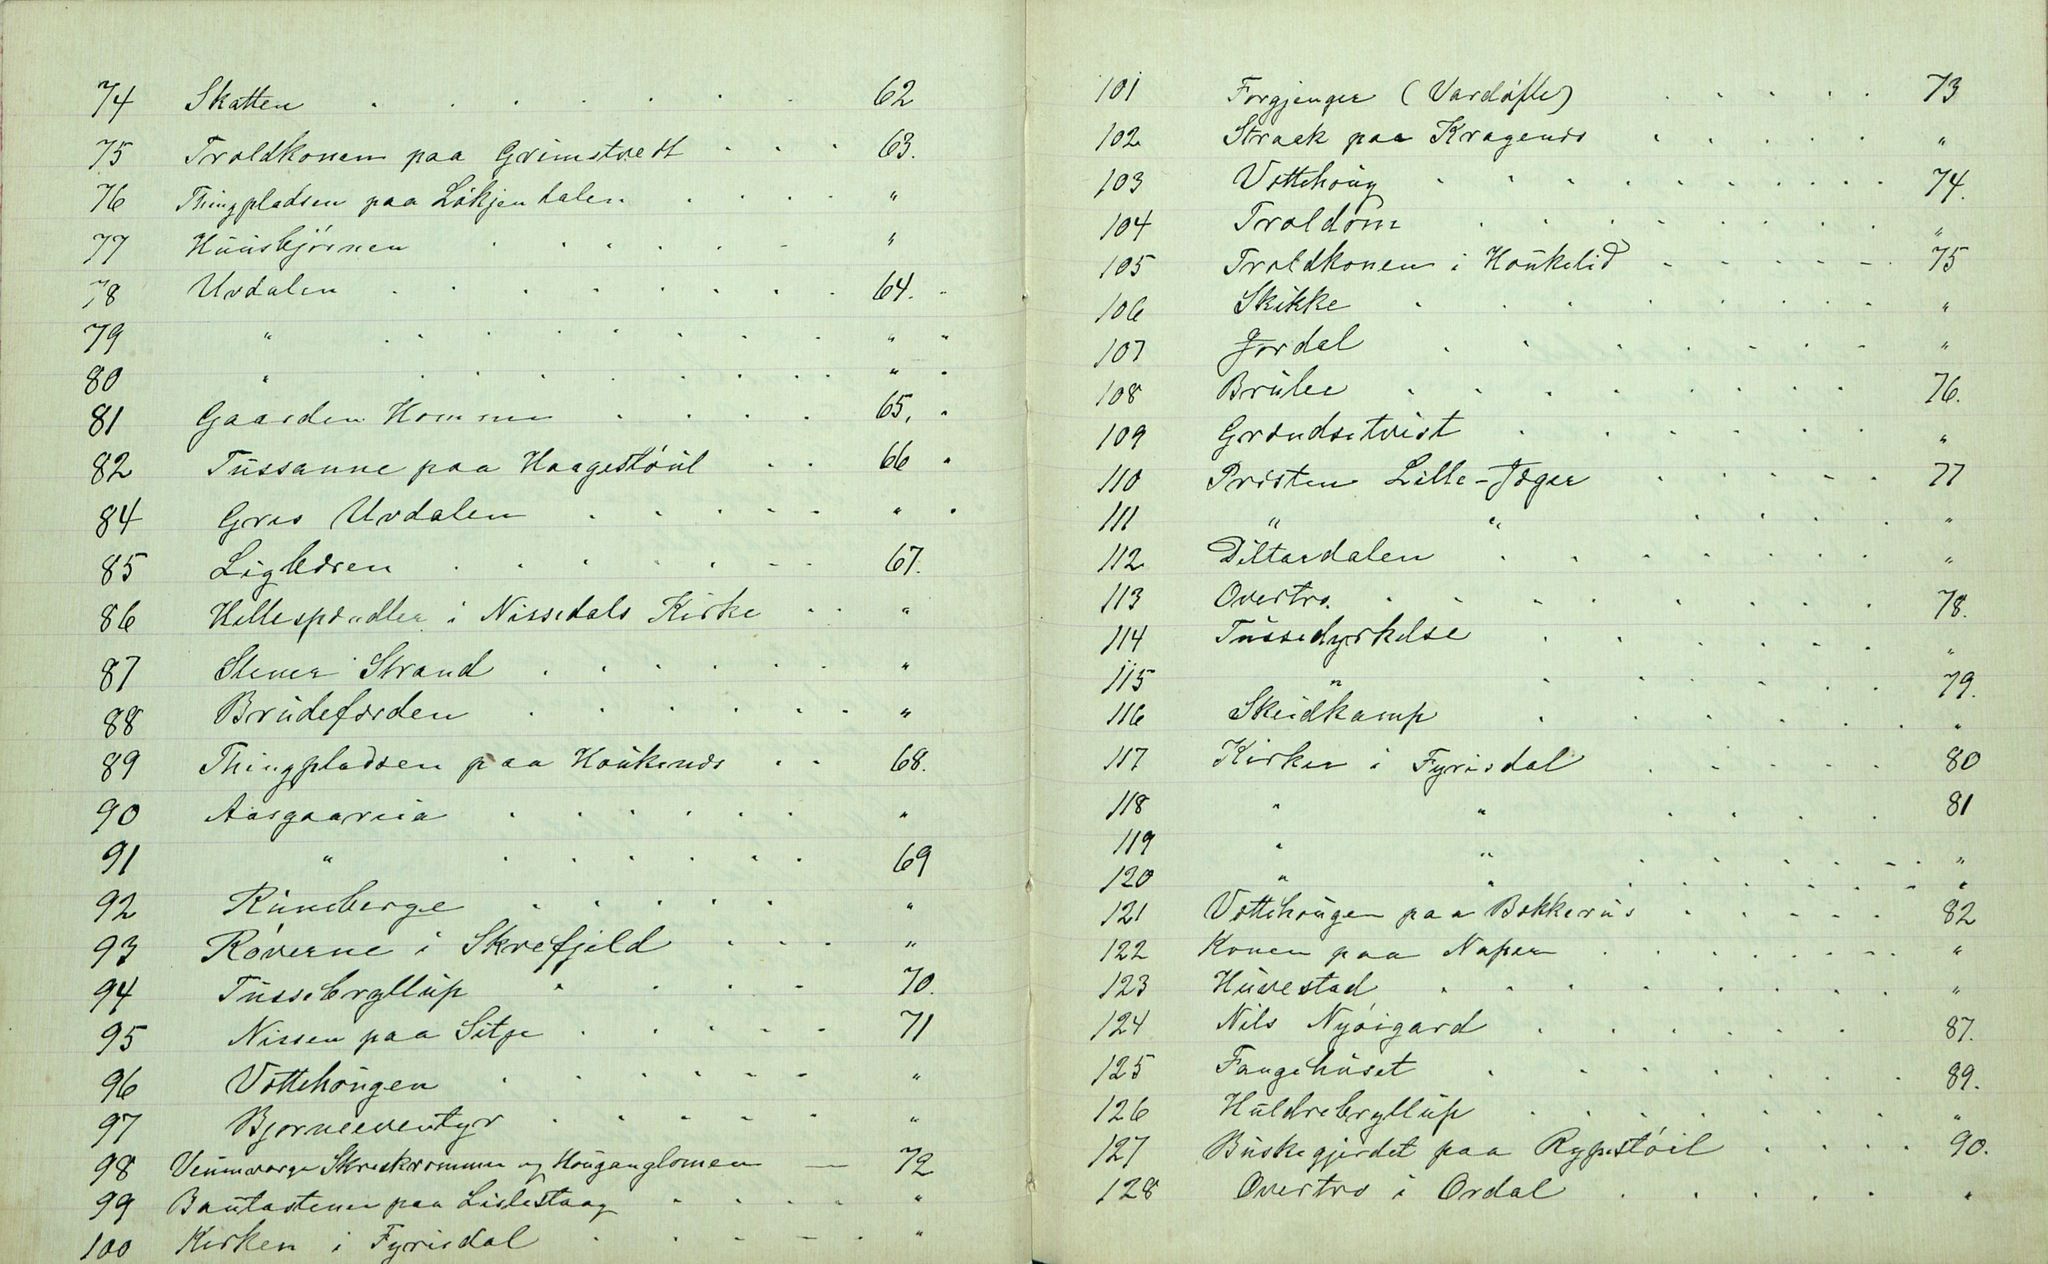 74 Skatten . . . . . . . 62
75 Troldkonen paa Grimstvedt . . . 63.
76 Thingpladsen paa Løkjendalen . . . . "
77 Huusbjørnen . . . . . - "
78 Uvdalen . . . . . . . 64. -
79 " . . . . . . . " "
80 " . . . . . . . " .
81 Gaarden Homme . . . . 65, .
82 Tussanne paa Haagestøül . . 66 .
84 Gros Uvdalen . . . . " .
85 Ligbæren . . . . . . 67.
86 Hellespændler i Nissedals Kirke . . "
87 Stener Strand . . . . . "
88 Brüdefærden . . . . . "
89 Thingpladsen paa Houkenæs . . 68.
90 Aasgaareia . . . . . "
91 " . . . . . 69
92 Rüneberge . . . . . "
93 Røverne i Skrefjeld . . . "
94 Tüssebryllüp . . . . 70.
95 Nissen paa Sitje . . . . 71
96 Vøttehøugen . . . . . "
97 Bjørneeventyr . . . . . "
98 og Hougan — 72
99 Bautastenen paa Lislestaag . . . . "
100 Kirken i Fyrisdal . . . . . "
101 Forgjenger (Vardøfle) . . . . . 73
102 Straak paa Kragenæs . . . . "
103 Vøttehoüg . . . . . . . 74.
104 Troldom . . . . . . "
105 Troldkonen i Hoükelid . . . . . 75
106 Skikke . . . . . . . "
107 Jordal . . . . . . "
108 Brülee . . . . . . 76.
109 Grændsetvist . . . . . "
110 Pristen Lille-Jæger . . . . 77
111 " " . . . . "
112 Diltardalen . . . . . . "
113 Overtro. . . . . . . 78.
114 Tüssedyrkelse . . . . . "
115 " . . . . . 79.
116 Skeidkamp . . . . . "
117 Kirken i Fyrisdal . . . . . 80
118 " " . . . . 81
119 " " . . . . . "
120 " " . . . . . "
121 Vøttehoügen paa Bakkerüs . . . . . 82
122 Konen paa Naper . . . . . . "
123 Hüvestad . . . . . . . "
124 Nils Nyøigard . . . . . 87.
125 Fangehüset . . . . . . 89.
126 Hüldrebryllüp . . . . . . "
127 Büskegjerdet paa Rypestøil . . . . 90.
128 Overtro i Ordal . . . . . "